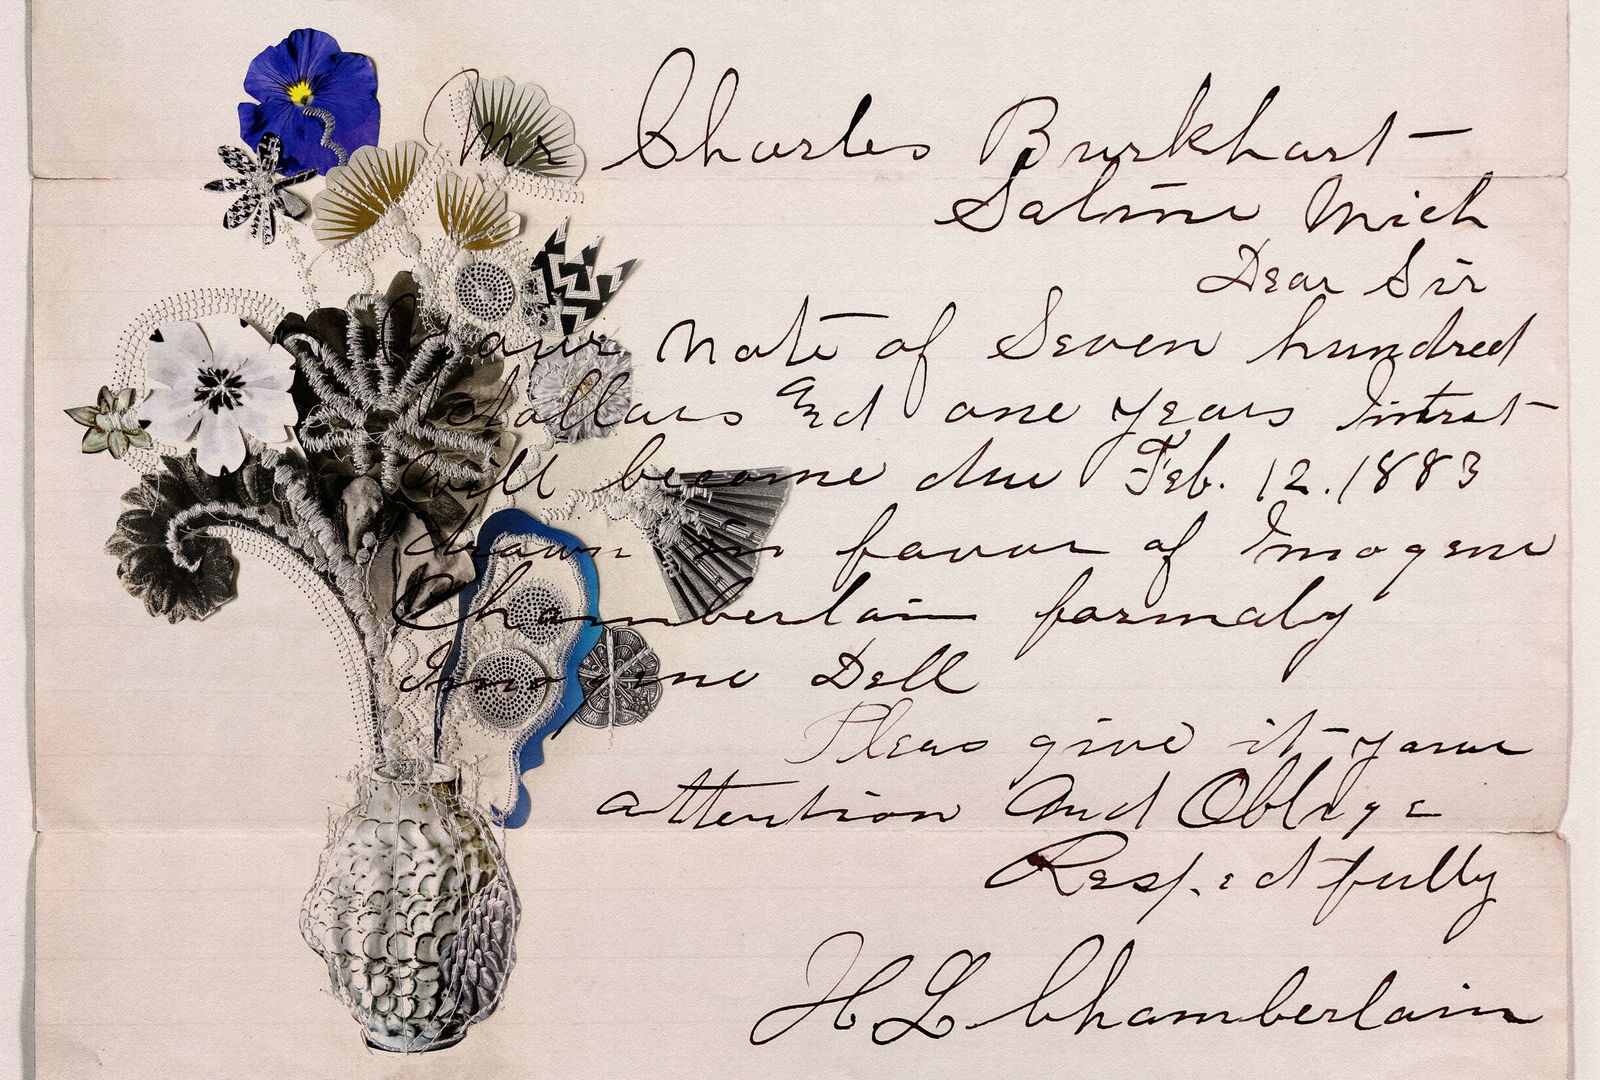 Mr Charles Burkhart
Saline Mich
Dear Sir
Your Note of Seven hundred
dollars and one years Intrst
will become due Feb. 12. 1883
drawn in favor of Imogene
Chamberlain formaly
Imogene Dell
Pleas give it your
attention And Oblige
Respectfully
H L Chamberlain